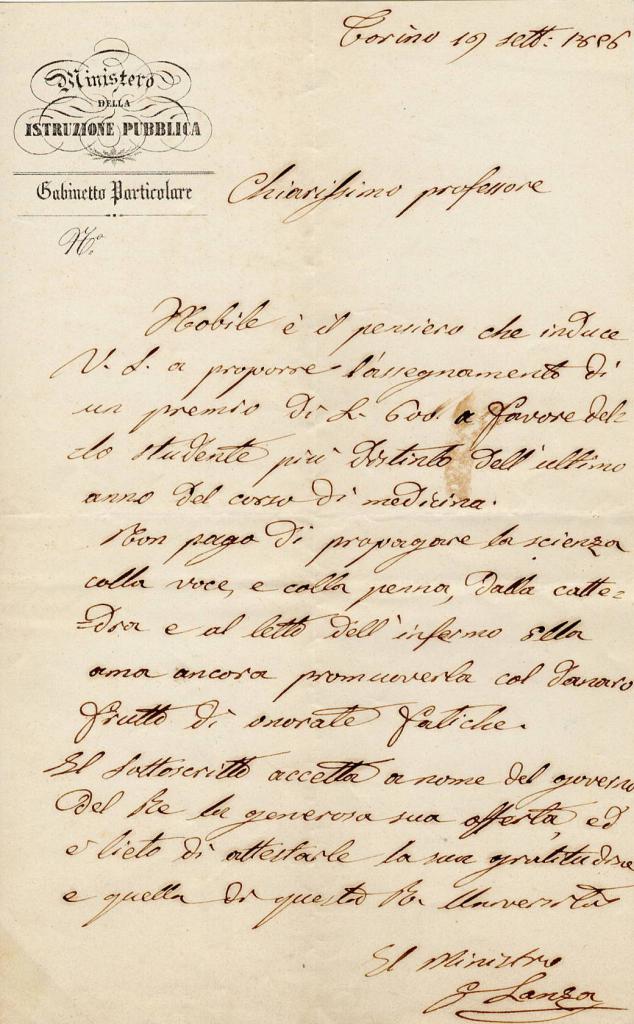 Torino 19 sett: 1856
Ministero
DELLA
ISTRUZIONE PUBBLICA
Gabinetto Particolare
N.º
Chiarissimo professore
Nobile è il pensiero che induce
V. S. a proporre l'assegnamento di
un premio di L. 600. a favore del=
=lo studente più distinto dell'ultimo
anno del corso di medicina.
Non pago di propagare la scienza
colla voce, e colla penna, dalla catte=
=dra e al letto dell'infermo Ella
ama ancora promuoverla col danaro
frutto di onorate fatiche.
Il sottoscritto accetta a nome del governo
del Re la generosa sua offerta, ed
è lieto di attestarle la sua gratitudine
e quella di questa R. Università
Il Ministro
G Lanza